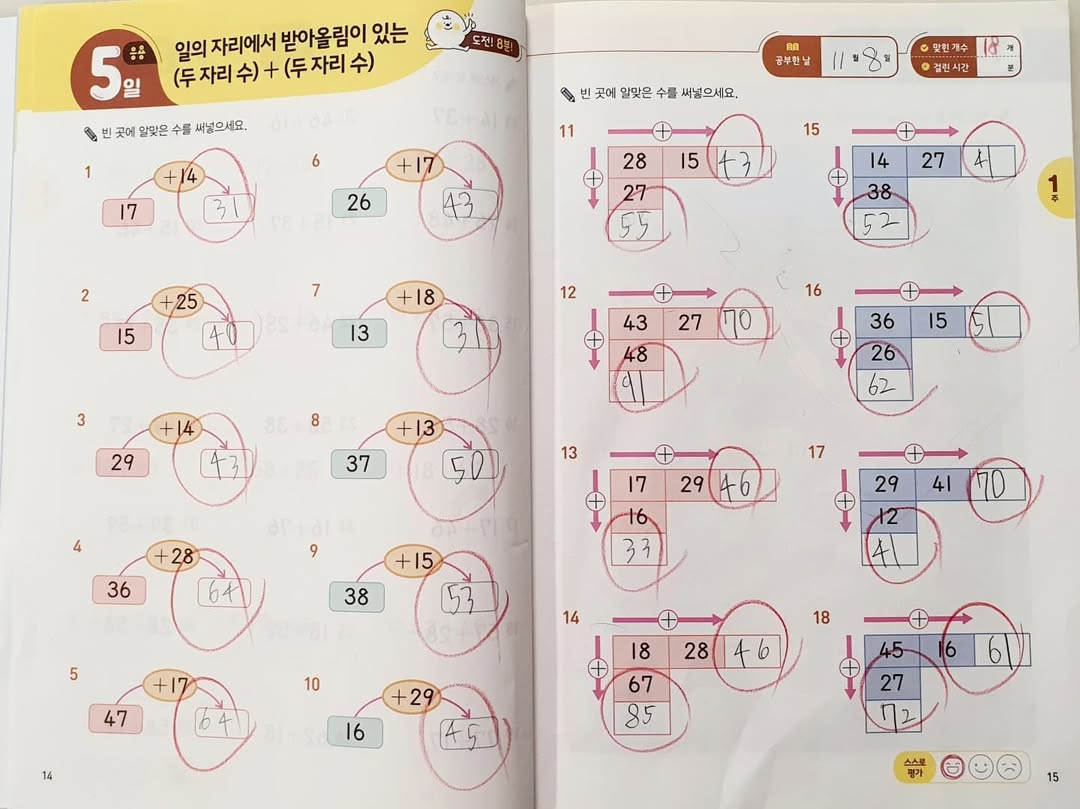 5일
응용
일의 자리에서 받아올림이 있는
(두 자리 수) + (두 자리 수)
도전! 8분!
빈 곳에 알맞은 수를 써넣으세요.
1
+14
17
31
6
+17
26
43
2
+25
15
40
7
+18
13
31
3
+14
29
43
8
+13
37
50
4
+28
36
64
9
+15
38
53
5
+17
47
64
10
+29
16
45
14
공부한 날
11월 8일
맞힌 개수 18개
걸린 시간 분
빈 곳에 알맞은 수를 써넣으세요.
1주
11
+
28 15 43
+
27
55
15
+
14 27 41
+
38
52
12
+
43 27 70
+
48
91
16
+
36 15 51
+
26
62
13
+
17 29 46
+
16
33
17
+
29 41 70
+
12
41
14
+
18 28 46
+
67
85
18
+
45 16 61
+
27
72
스스로
평가
15